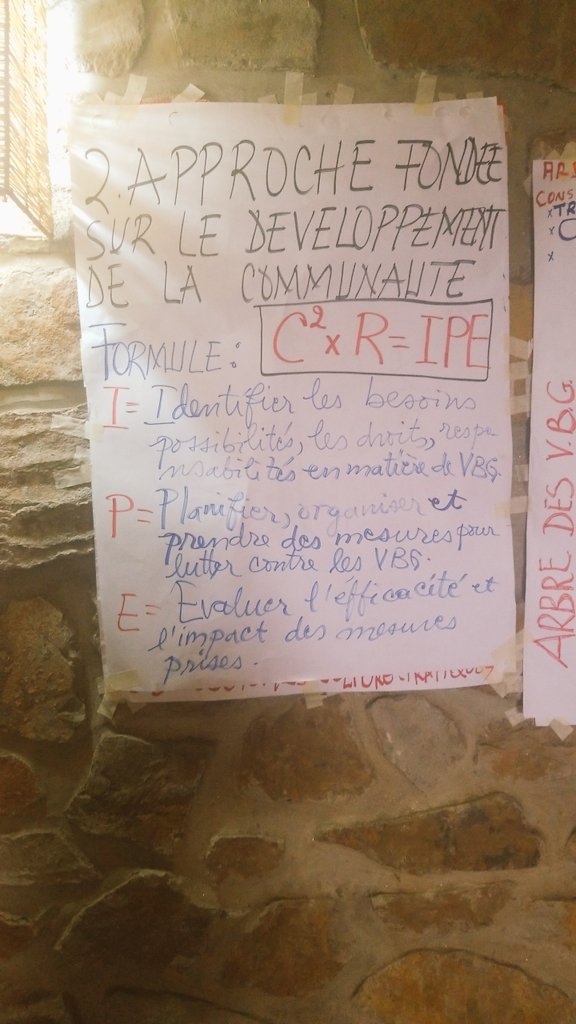 2. APPROCHE FONDEE
SUR LE DEVELOPPEMENT
DE LA COMMUNAUTE
FORMULE: C² x R = IPE
I = Identifier les besoins
possibilités, les droits, respo
nsabilités en matière de VBG.
P = Planifier, organiser et
prendre des mesures pour
lutter contre les VBG.
E = Evaluer l'éfficacité et
l'impact des mesures
prises.
CONS
x TR
x C
x
ARBRE DES V.B.G.